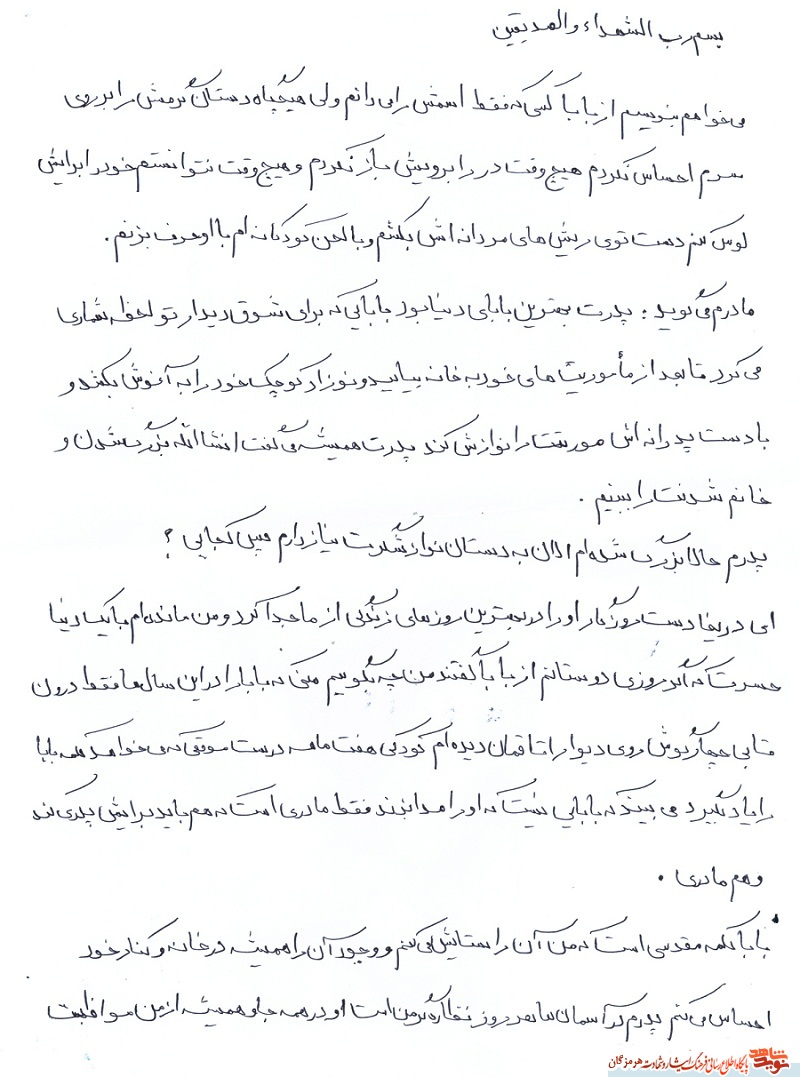 بسم رب الشهداء والصدیقین
می خواهم بنویسم از بابا کسی که فقط اسمش را می دانم ولی هیچگاه دستان گرمش را بر روی
سرم احساس نکردم هیچ وقت در را برویش باز نکردم و هیچ وقت نتوانستم خود را برایش
لوس کنم دست توی ریش های مردانه اش بکشم و با لحن کودکانه ام با او حرف بزنم .
مادرم می گوید : پدرت بهترین بابای دنیا بود بابایی که برای شوق دیدار تو لحظه شماری
می کرد تا بعد از مأموریت های خود به خانه بیاید و نوزاد کوچک خود را به آغوش بکشد و
با دست پدرانه اش صورتت را نوازش کند پدرت همیشه می گفت انشاالله بزرگ شدن و
خانم شدنت را ببینم .
پدرم حالا بزرگ شده ام الان به دستان نوازشگرت نیاز دارم پس کجایی ؟
ای دریغا دست روزگار او را در بهترین روزهای زندگی از ما جدا کرد و من مانده ام با یک دنیا
حسرت که اگر روزی دوستانم از بابا گفتند من چه بگویم منی که بابا را در این سال ها فقط درون
قابی چهارگوش روی دیوار اتاقمان دیده ام کودکی هفت ماهه درست موقعی که می خواهد کلمه بابا
را یاد بگیرد می بیند که بابایی نیست که او را صدا بزند فقط مادری است که هم باید برایش پدری کند
و هم مادری .
بابا کلمه مقدسی است که من آن را ستایش می کنم و وجود آن را همیشه در خانه و کنار خود
احساس می کنم پدرم در آسمان ها هر روز نظاره گر من است او در همه جا و همیشه از من مواظبت
نوید شاهد
پایگاه اطلاع رسانی فرهنگ ایثار و شهادت هرمزگان